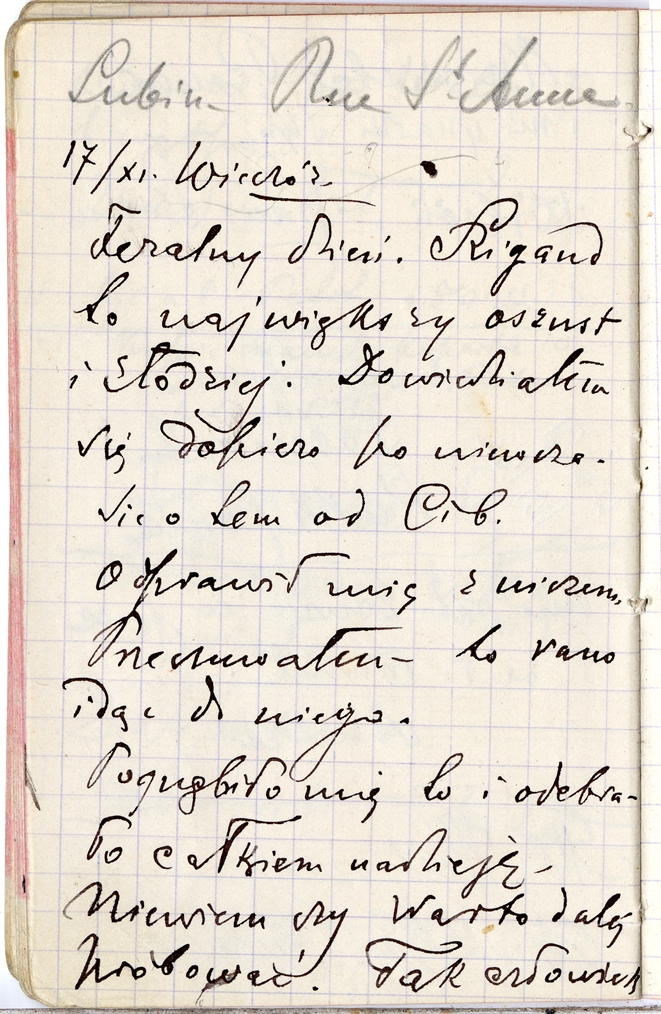 Lubin - Rue St Anne -
17/XI. Wieczór
Feralny dzień. Rigaud
to największy oszust
i złodziej. Dowiedziałem
się dopiero po niewcza-
sie o tem od Cib.
Odprawił mię z niczem
Przeczuwałem - to rano
idąc do niego.
Pognębiło mię to i odebra-
ło całkiem nadzieję -
Niewiem czy warto dalej
próbować. Tak człowiek